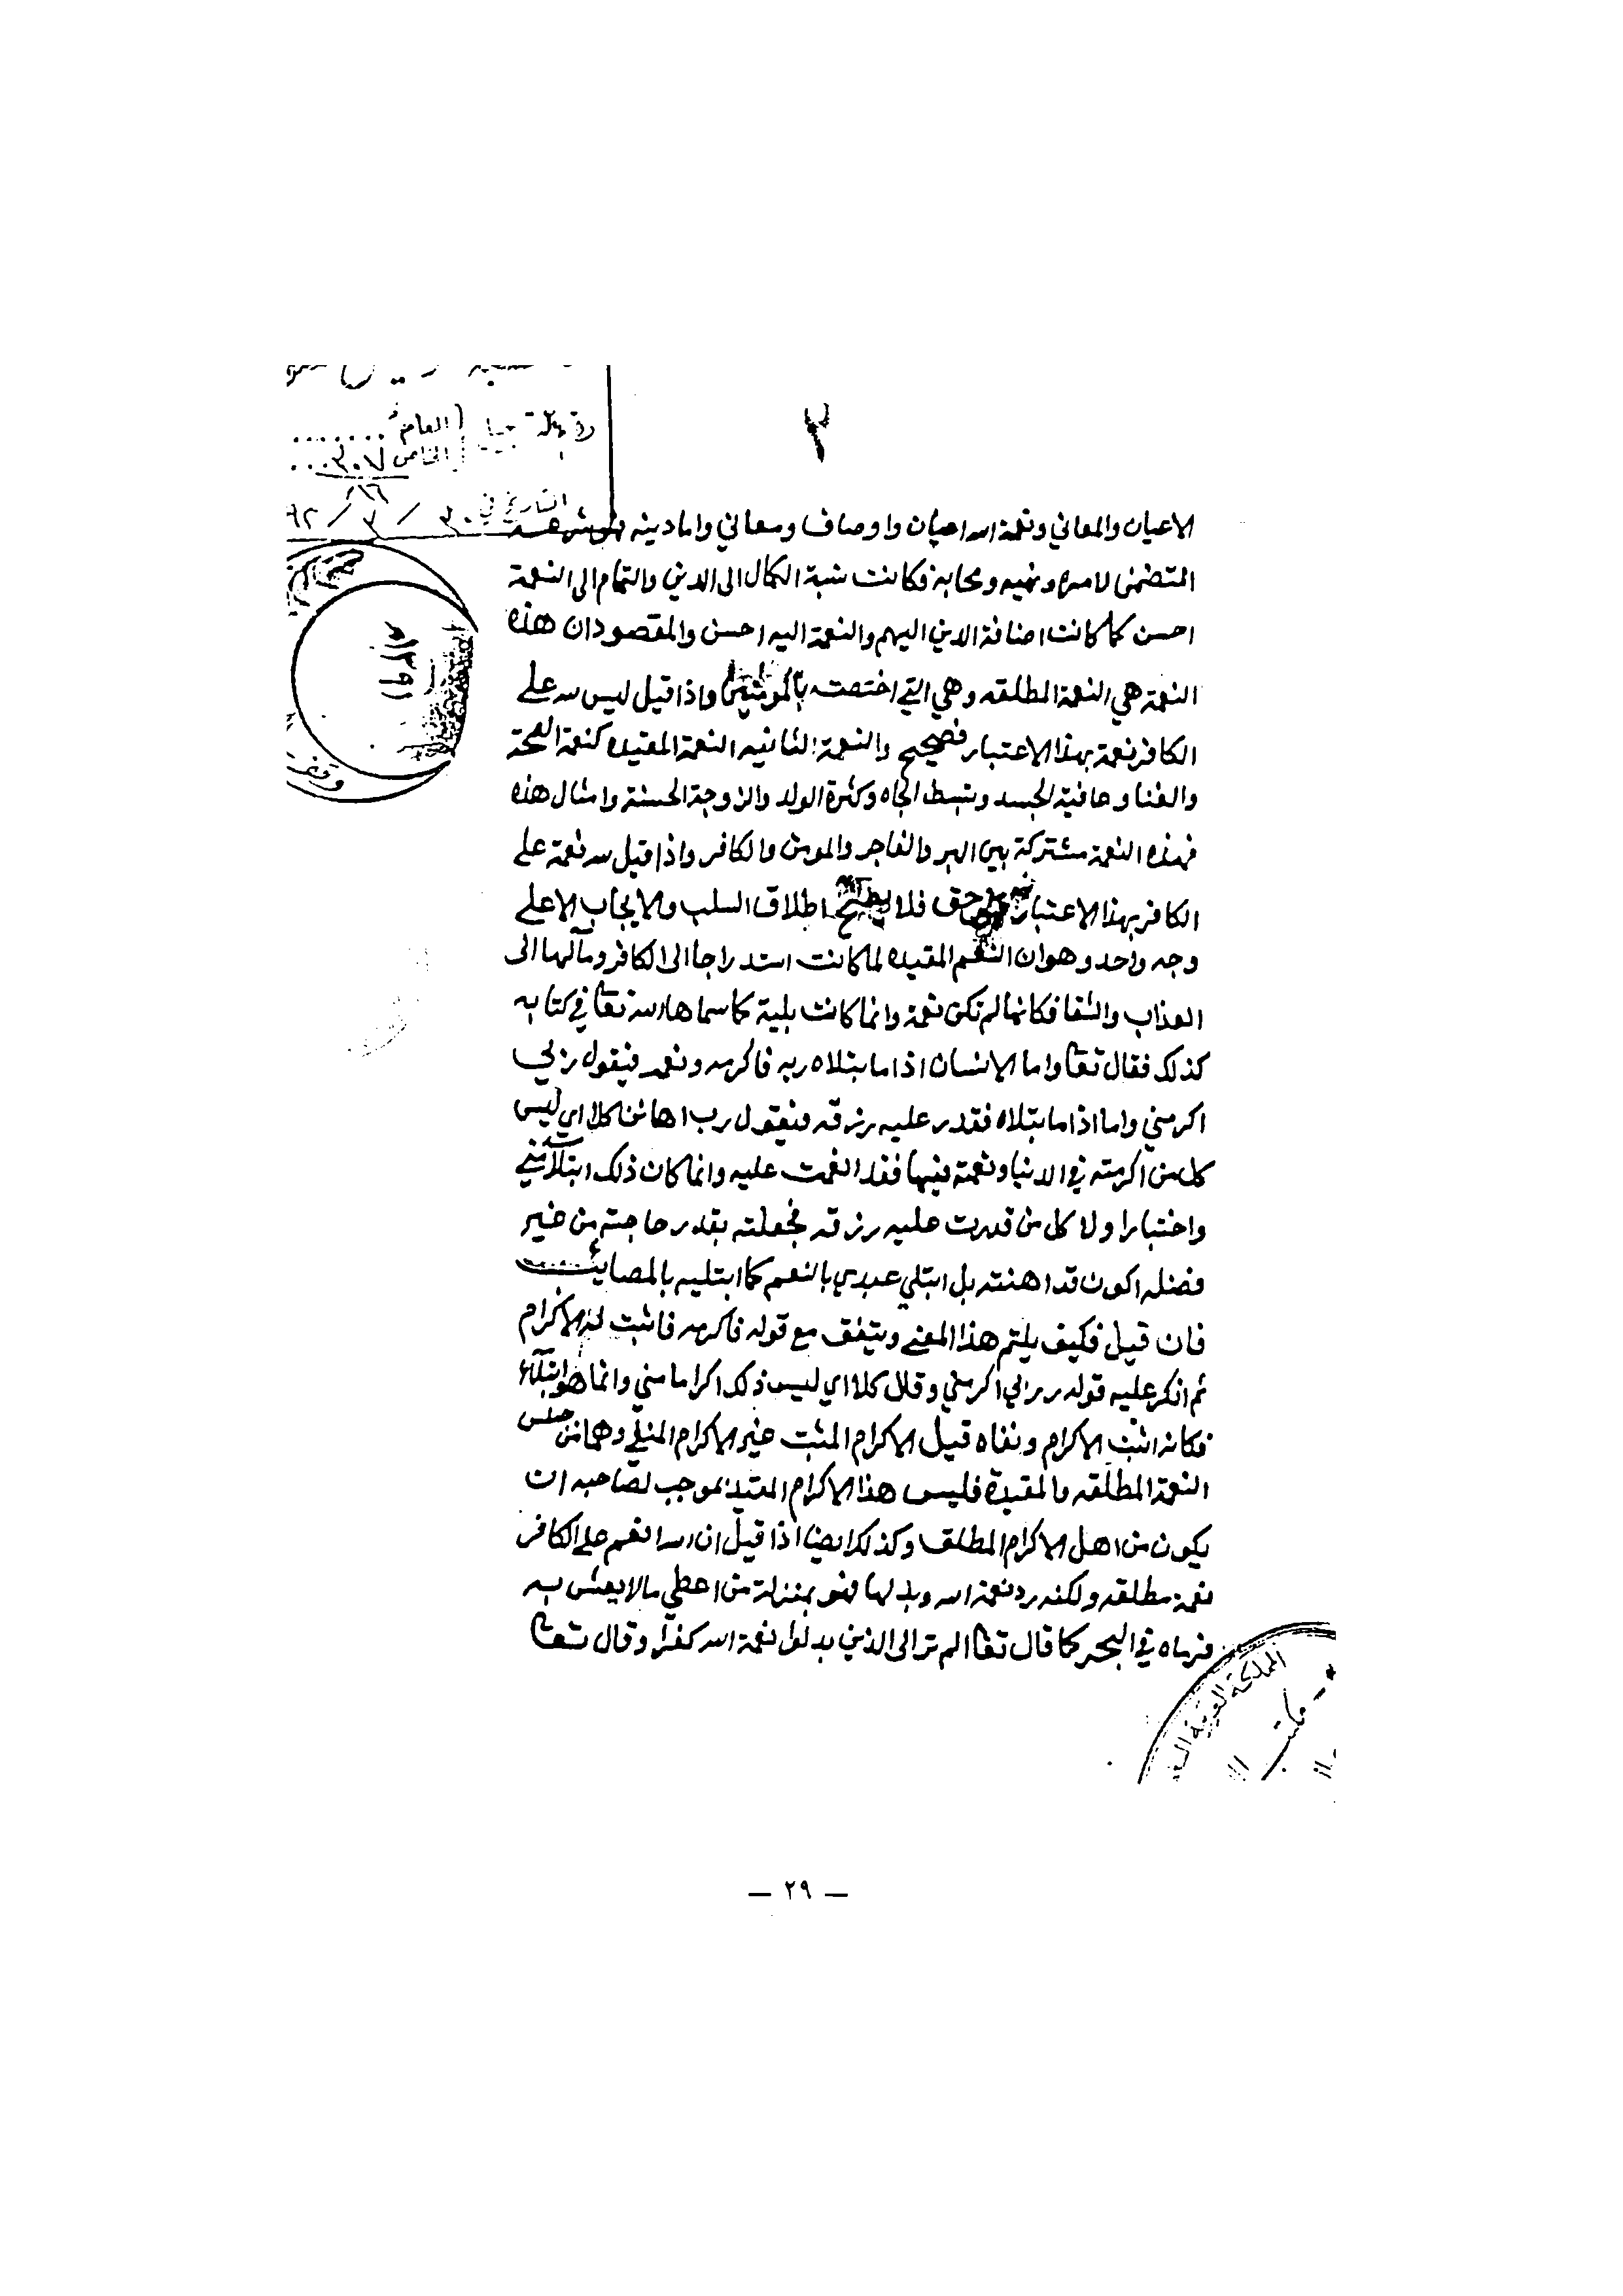 ٢
العام ........
الخاص ٣٠٧...
التاريخ في ٣٠ / ٣ / ٩٢
١٣٩١هـ
الاعيان والمعاني ونعمة الله اعيان واوصاف ومعاني واما دينه فهو شرعه
المتضمن لامره ونهيه ومحابه فكانت نسبة الكمال الى الدين والتمام الى النعمة
احسن كما كانت اضافة الدين اليهم والنعمة اليه احسن والمقصود ان هذه
النعمة هي النعمة المطلقه وهي التي اختصت بالمومنين واذا قيل ليس لله على
الكافر نعمة بهذا الاعتبار فصحيح والنعمة الثانيه النعمة المقيده كنعمة الصحة
والغنا وعافية الجسد وتبسط الجاه وكثرة الولد والزوجة الحسنة وامثال هذه
فهذه النعمة مشتركة بين البر والفاجر والمومن والكافر واذا قيل لله نعمة على
الكافر بهذا الاعتبار فهو حق فلا يصح اطلاق السلب والايجاب الا على
وجه واحد وهو ان النعم المقيده لما كانت استدراجا الى الكافر ومآلها الى
العذاب والشقا فكانها لم تكن نعمة وانما كانت بلية كما سماها الله تعا في كتابه
كذلك فقال تعا واما الانسان اذا ما ابتلاه ربه فاكرمه ونعمه فيقول ربي
اكرمني واما اذا ما ابتلاه فقدر عليه رزقه فيقول رب اهانن كلا اي ليس
كل من اكرمته في الدنيا ونعمته فيها فقد انعمت عليه وانما كان ذلك ابتلآ مني
واختبارا ولا كل من قدرت عليه رزقه فجعلته بقدر حاجته من غير
فضله اكون قد اهنته بل ابتلي عبدي بالنعم كما ابتليه بالمصائب
فان قيل فكيف يلتم هذا المعنى ويتفق مع قوله فاكرمه فاثبت له الاكرام
ثم انكر عليه قوله ربي اكرمني وقال كلا اي ليس ذلك اكراما مني وانما هو ابتلآء
فكانه اثبت الاكرام ونفاه قيل الاكرام المثبت غير الاكرام المنفي وهما من جنس
النعمة المطلقه والمقيدة فليس هذا الاكرام المقيد بموجب لصاحبه ان
يكون من اهل الاكرام المطلق وكذلك ايضا اذا قيل ان الله انعم على الكافر
نعمة مطلقه ولكنه رد نعمة الله وبدلها فهو بمنزلة من اعطي مالا يعيش به
فرماه في البحر كما قال تعا الم تر الى الذين بدلوا نعمة الله كفرا وقال تعا
المملكة العربية
مكتب
— ٢٩ —